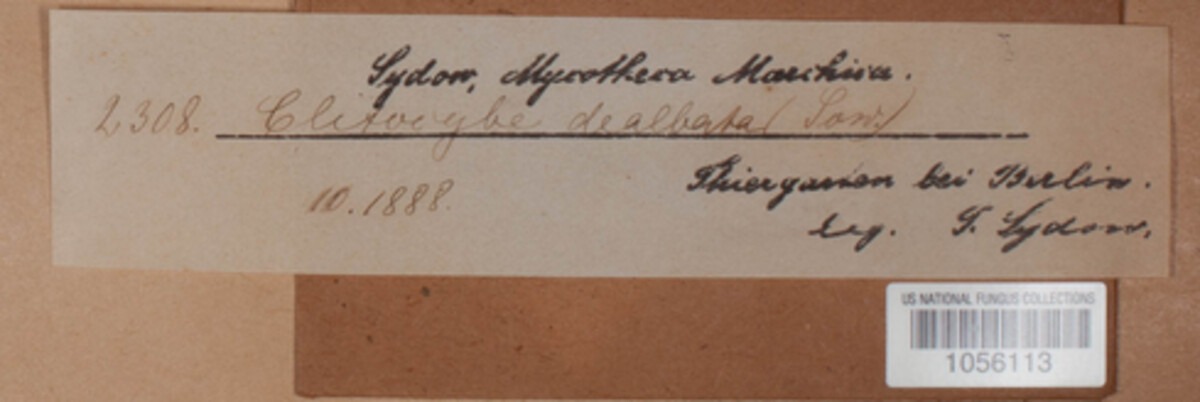 Sydow, Mycotheca Marchica.
2308. Clitocybe dealbata (Sow.)
Thiergarten bei Berlin.
10.1888.
leg. P. Sydow.
US NATIONAL FUNGUS COLLECTIONS
1056113